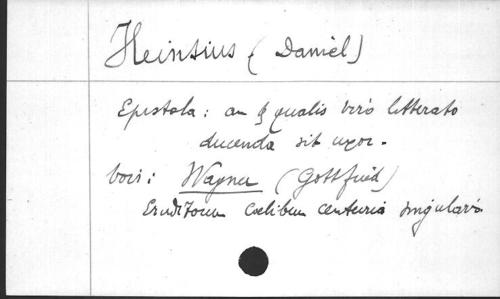 Heinsius (Daniel)
Epistola: an & qualis viro litterato
ducenda sit uxor.
Voir: Wagner (Gottfried)
Eruditorum Coelibum centuria singularis